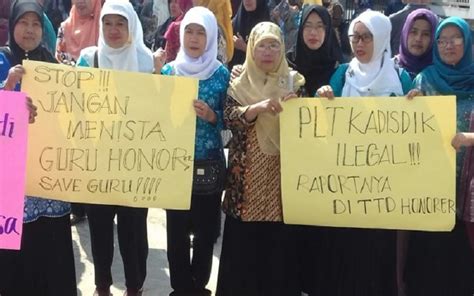 STOP!!!
JANGAN
MENISTA
GURU HONOR
SAVE GURU!!!!
PLT KADISDIK
ILEGAL!!!
RAPORTNYA
DI TTD HONORER